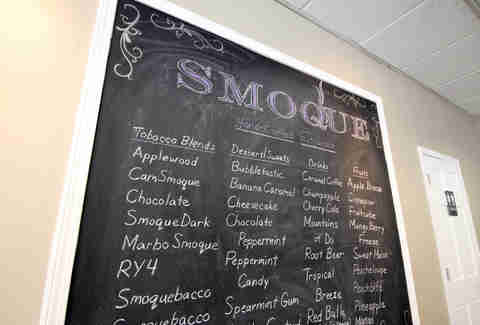 SMOQUE
Tobacco Blends
Applewood
CamSmoque
Chocolate
SmoqueDark
Marbo Smoque
RY4
Smoquebacco
Dessert/Sweets
Bubbletastic
Banana Caramel
Cheesecake
Chocolate
Peppermint
Peppermint
Candy
Spearmint Gum
Drinks
Caramel Coffee
Champagne
Cherry Cola
Mountains
of Do
Root Beer
Tropical
Breeze
Red Balls
Fruits
Apple
Mango Berry
Freeze
Sweet
Pineapple
Mango